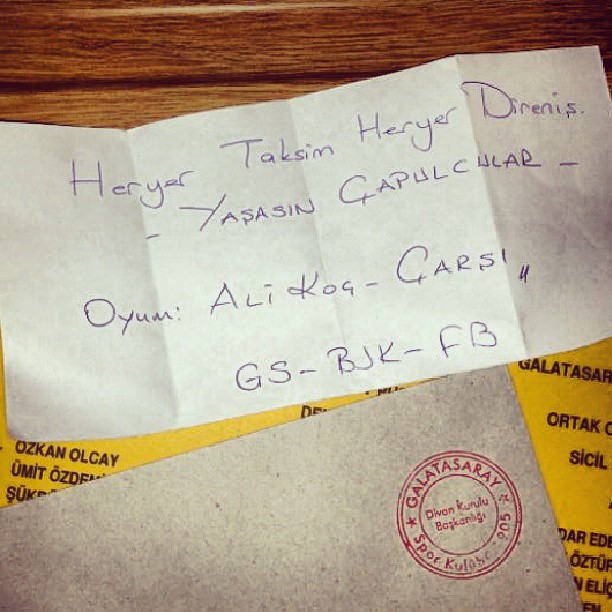 Heryer Taksim Heryer Direniş.
- YAŞASIN ÇAPULCULAR -
Oyum: ALİ KOÇ - ÇARŞI "
GS - BJK - FB
GALATASAR
ORTAK
SİCİL
ÖZKAN OLCAY
ÜMİT ÖZDE
ŞÜK
GALATASARAY
Divan Kurulu
Başkanlığı
Spor Kulübü 905
DAR EDE
ÖZTÜ